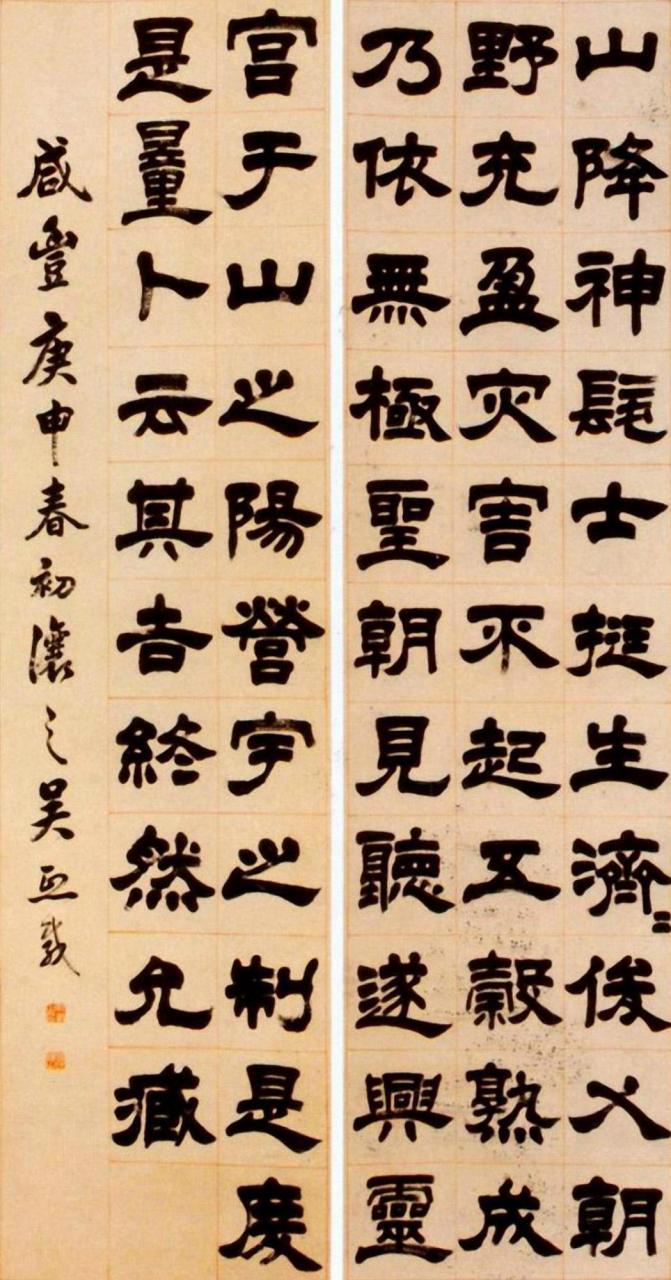 山降神髦士挺生濟〻俊乂朝
野充盈灾害不起五穀熟成
乃依無極聖朝見聽遂興靈
宫于山之陽營宇之制是度
是量卜云其吉終然允臧
咸豐庚申春初讓之吴熙載